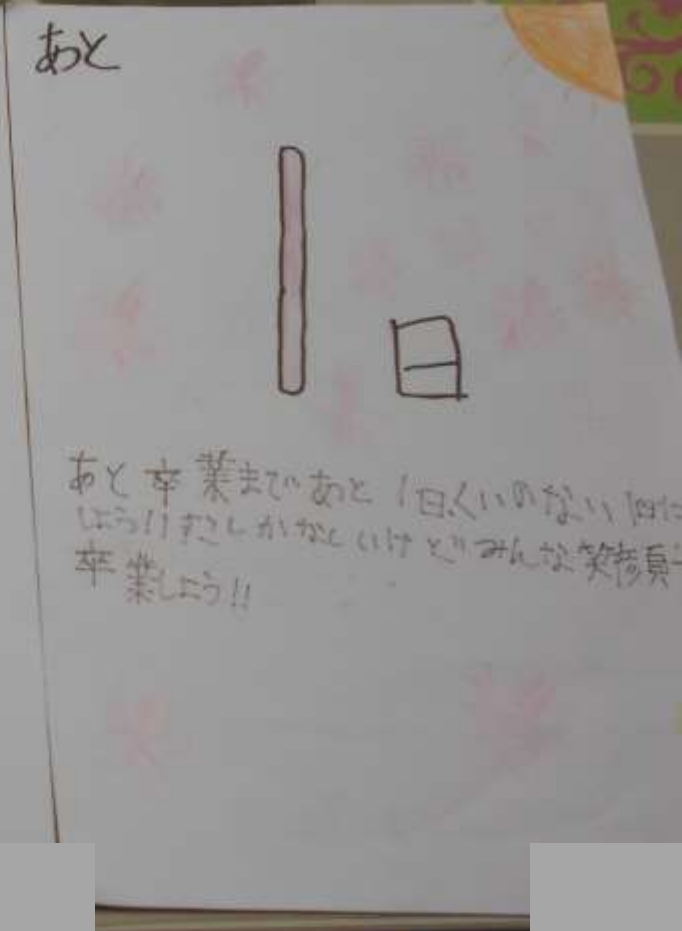 あと
1日
あと卒業まであと1日、くいのない1日に
しよう!!すこしかなしいけどみんな笑顔で
卒業しよう!!